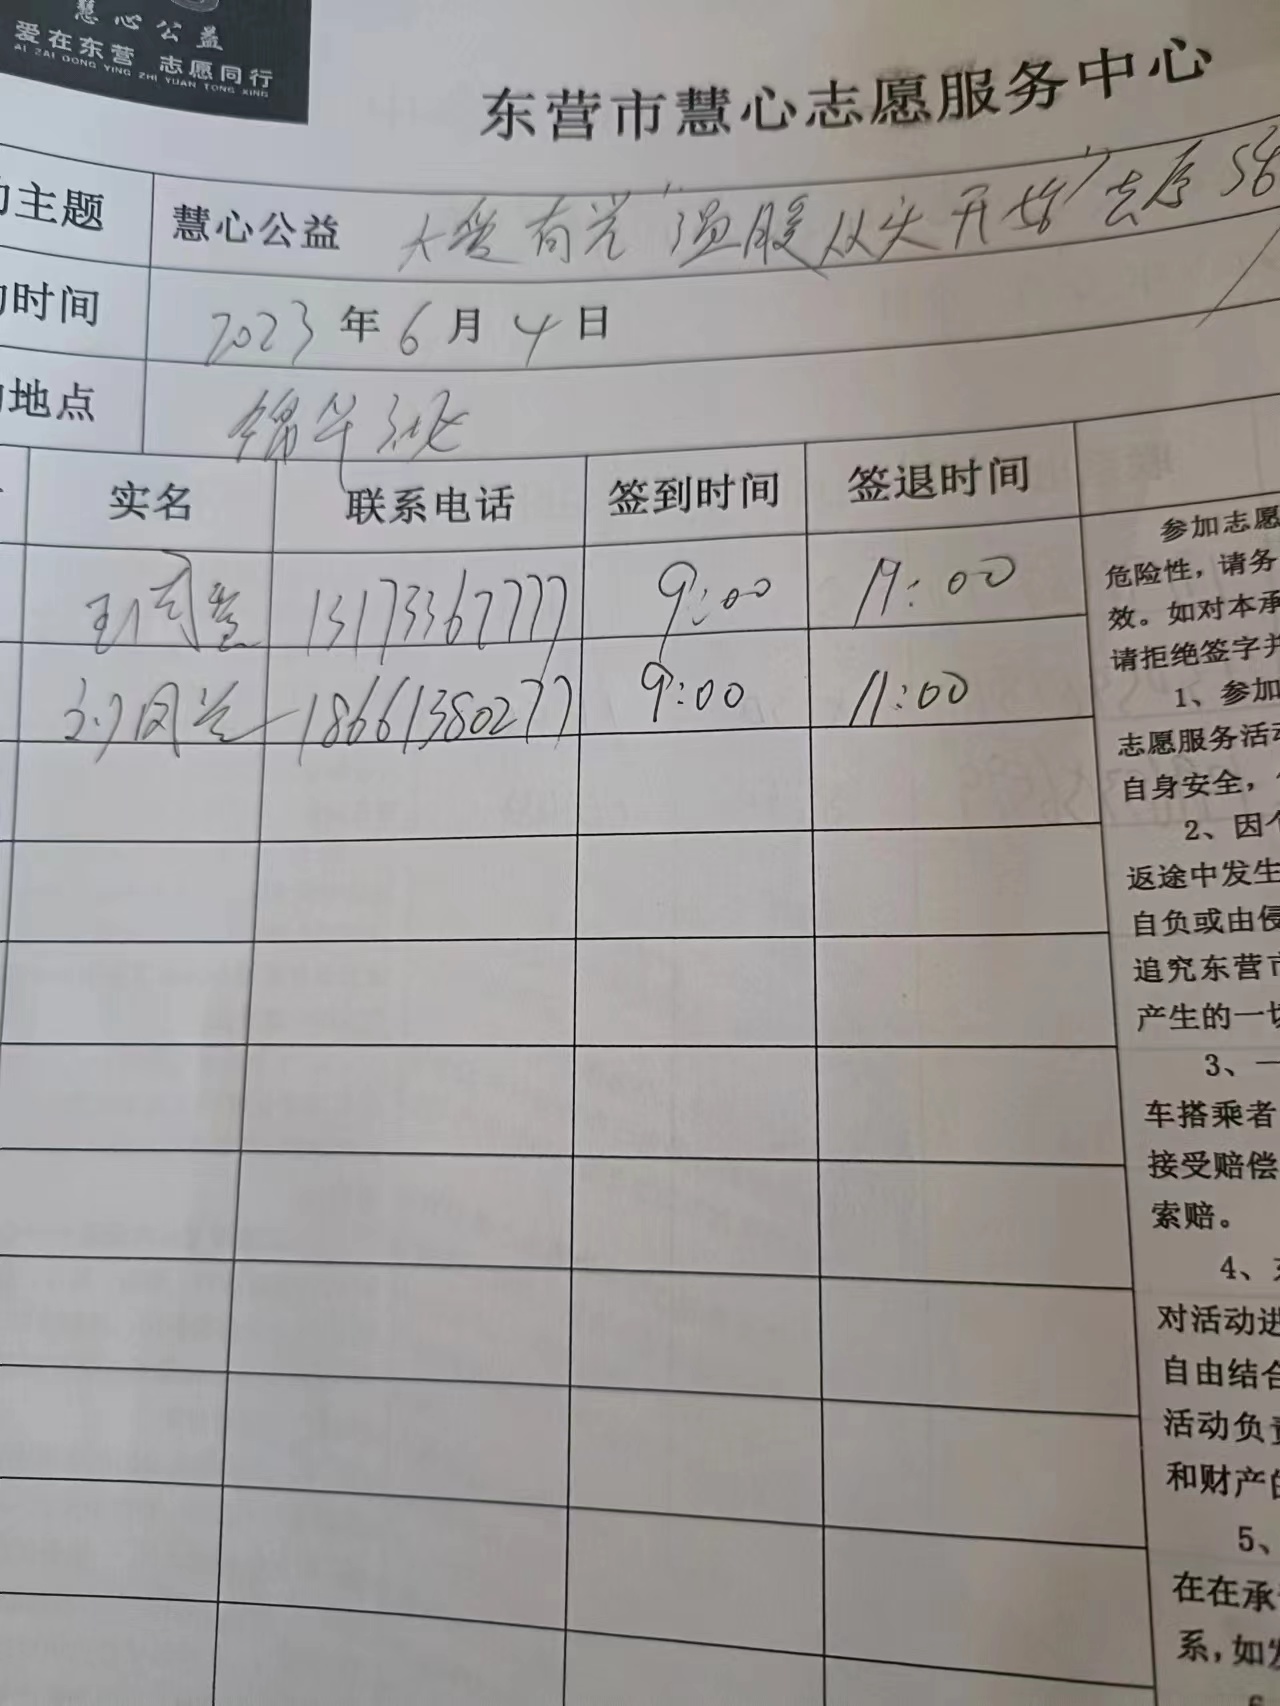 慧心公益
爱在东营 志愿同行
AI ZAI DONG YING ZHI YUAN TONG XING
东营市慧心志愿服务中心
主题 慧心公益 大爱有光"温暖从头开始"去序
时间 2023年6月4日
地点 锦华
实名 联系电话 签到时间 签退时间
13173367777 9:00 11:00
刘凤兰 18661380277 9:00 11:00
参加志愿
危险性，请务
效。如对本承
请拒绝签字并
1、参加
志愿服务活动
自身安全，
2、因个
返途中发生
自负或由侵
追究东营市
产生的一切
3、一
车搭乘者
接受赔偿
索赔。
4、
对活动进
自由结合
活动负责
和财产的
5、
在在承
系，如发